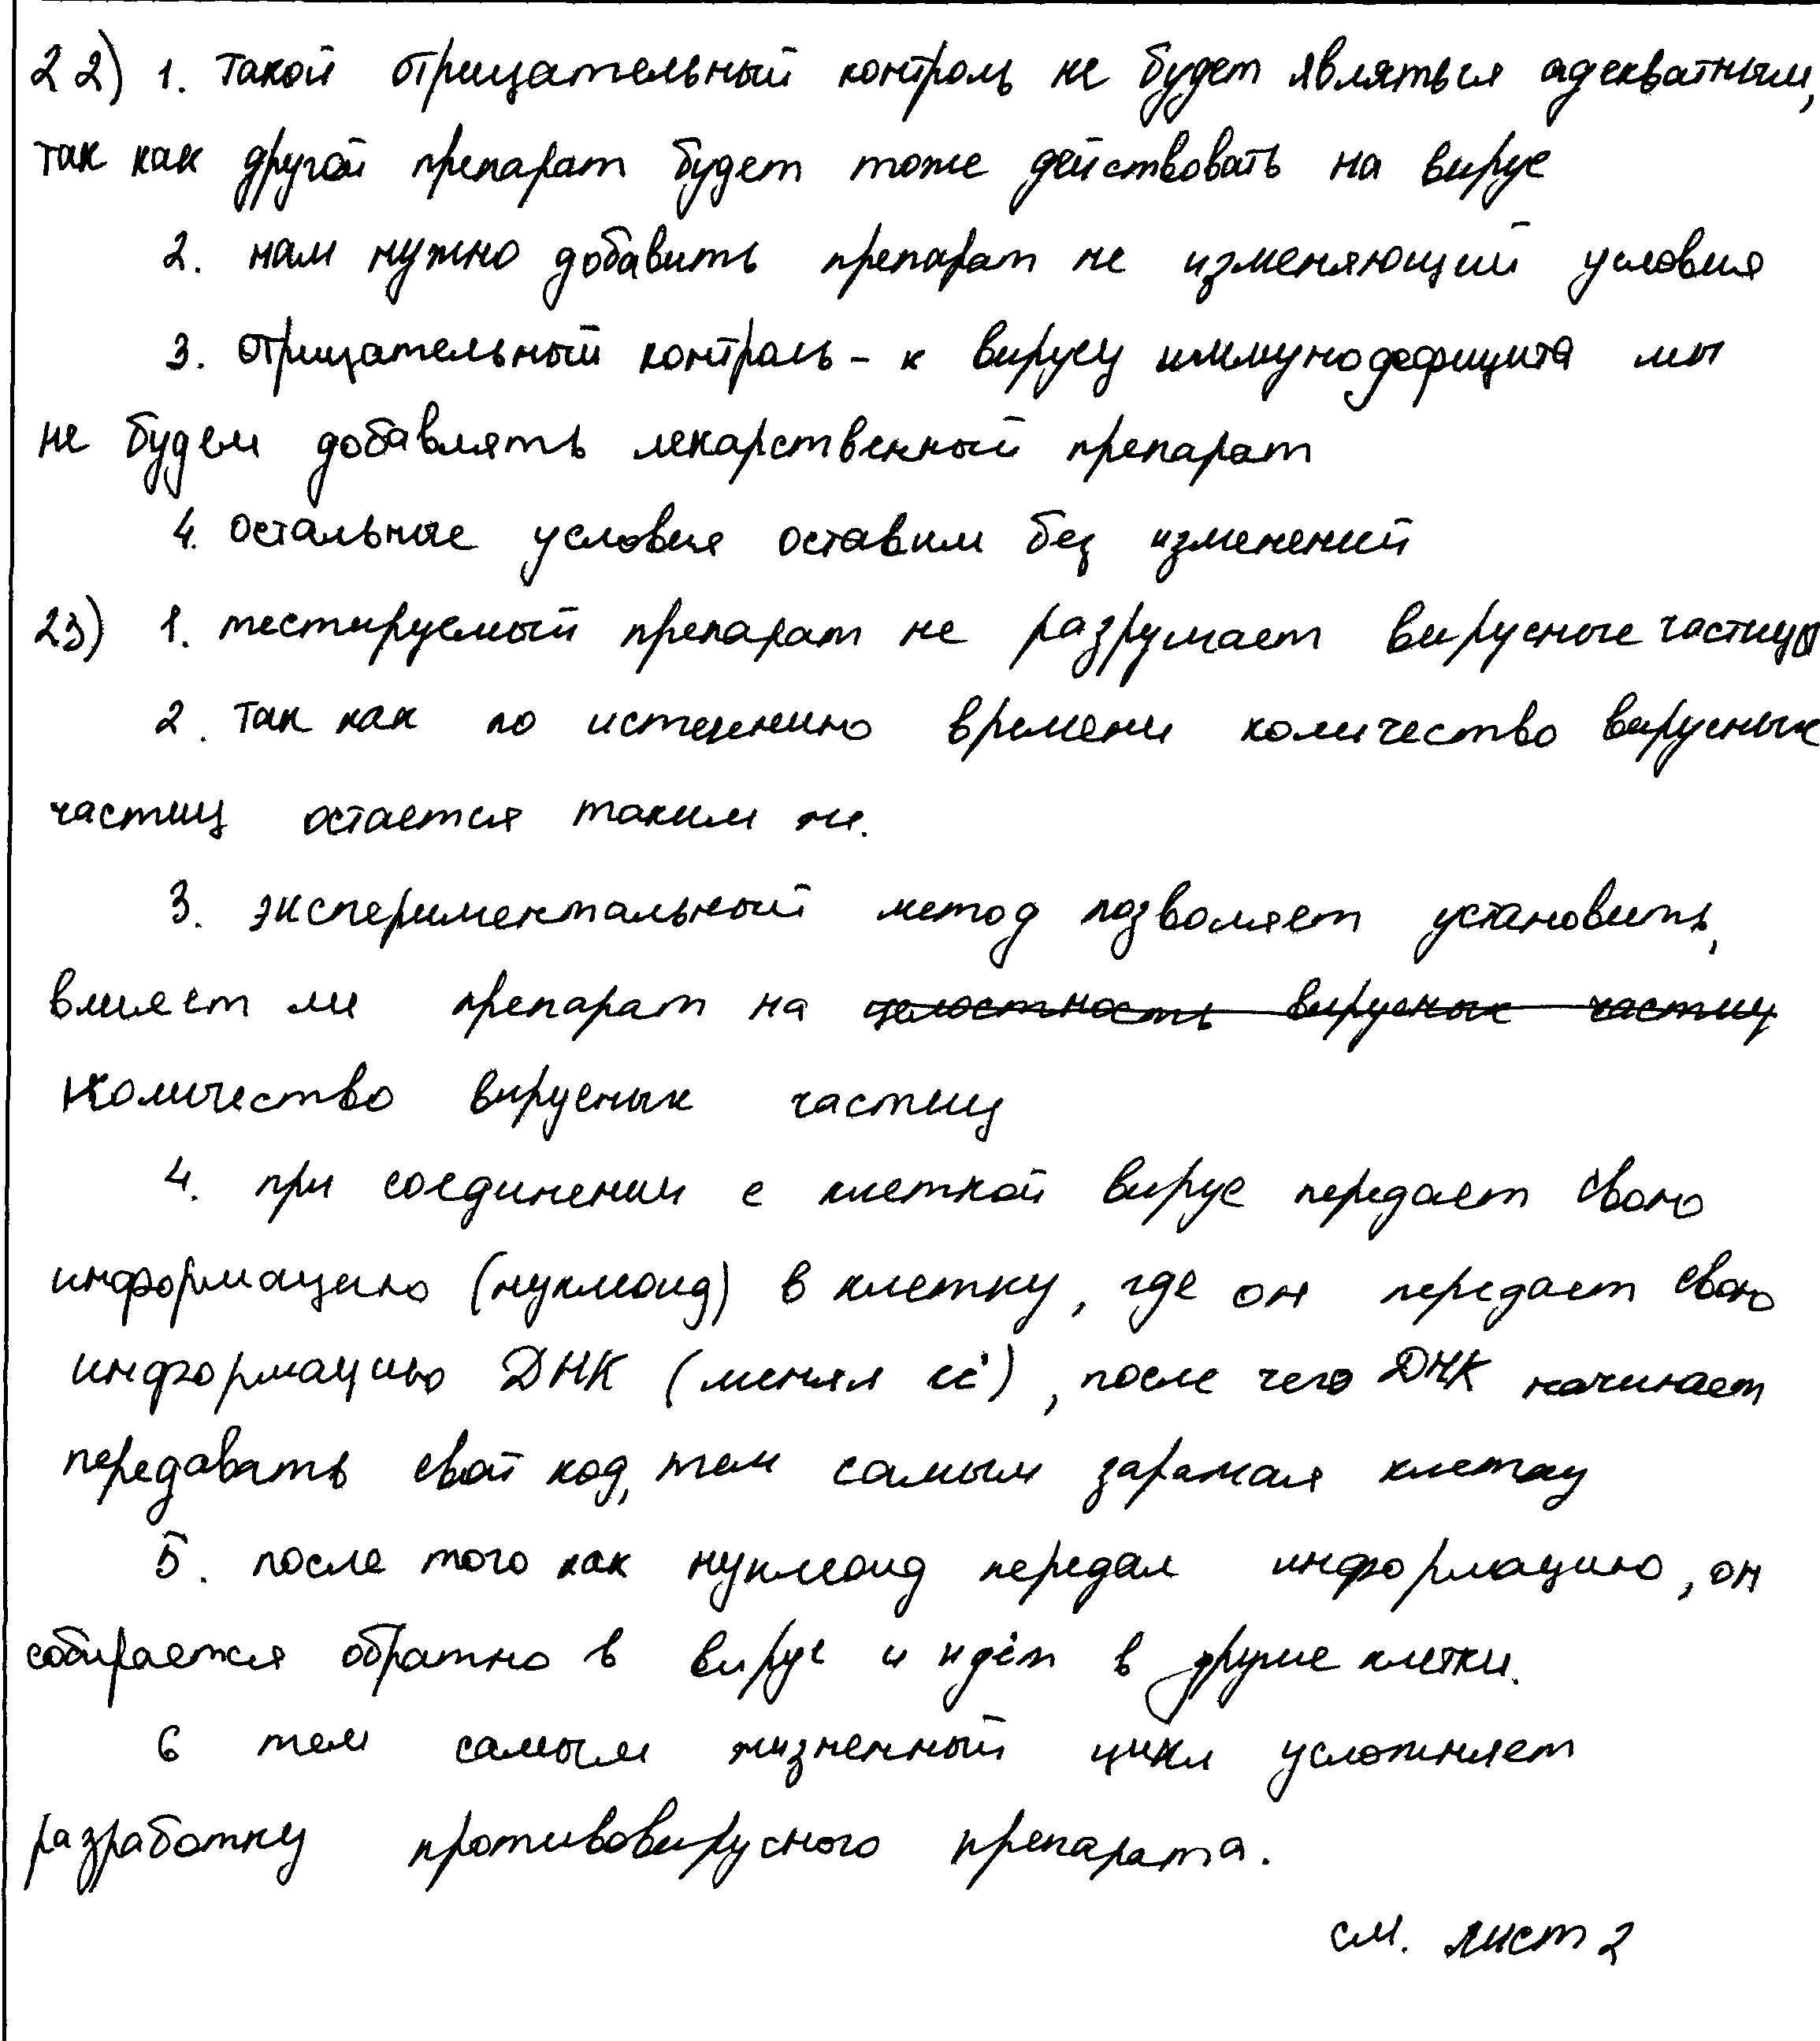 22) 1. такой отрицательный контроль не будет являться адекватным,
так как другой препарат будет тоже действовать на вирус
2. нам нужно добавить препарат не изменяющий условия
3. отрицательный контроль - к вирусу иммунодефицита мы
не будем добавлять лекарственный препарат
4. остальные условия оставим без изменений
23) 1. тестируемый препарат не разрушает вирусные частицы
2. так как по истечению времени количество вирусных
частиц остается таким же.
3. экспериментальный метод позволяет установить,
влияет ли препарат на целостность вирусных частиц
количество вирусных частиц
4. при соединении с клеткой вирус передает свою
информацию (нуклеоид) в клетку, где он передает свою
информацию ДНК (меняя её), после чего ДНК начинает
передавать свой код, тем самым заражая клетку
5. после того как нуклеоид передал информацию, он
собирается обратно в вирус и идёт в другие клетки.
6 тем самым жизненный цикл усложняет
разработку противовирусного препарата.
см. лист 2